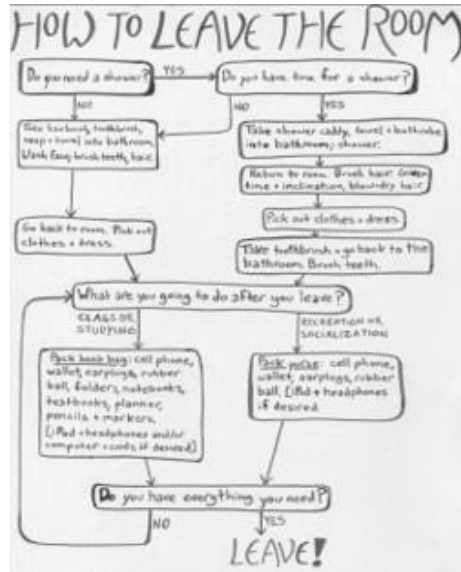 HOW TO LEAVE THE ROOM
Do you need a shower?
YES
Do you have time for a shower?
NO
NO
YES
Take hairbrush, toothbrush,
soap + towel into bathroom.
Wash face, brush teeth, hair.
Take shower caddy, towel + bathrobe
into bathroom; shower.
Return to room. Brush hair. Given
time + inclination, blow-dry hair.
Pick out clothes + dress.
Go back to room. Pick out
clothes + dress.
Take toothbrush + go back to the
bathroom. Brush teeth.
What are you going to do after you leave?
CLASS OR
STUDYING
RECREATION OR
SOCIALIZATION
Pack book bag: cell phone,
wallet, earplugs, rubber
ball, folders, notebooks,
textbooks, planner,
pencils + markers.
[iPod + headphones and/or
computer + cords if desired]
Pack purse: cell phone,
wallet, earplugs, rubber
ball, [iPod + headphones
if desired.
Do you have everything you need?
NO
YES
LEAVE!